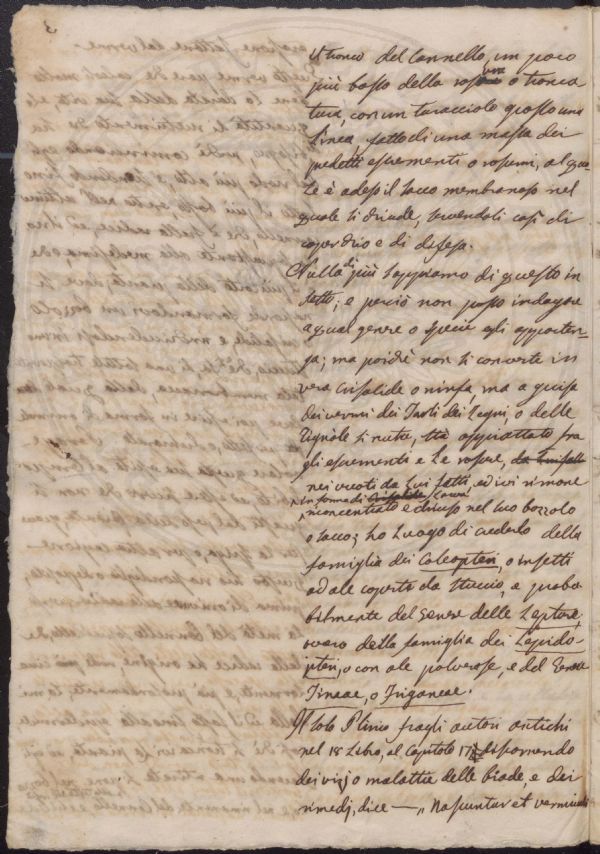 3
il tronco del Cannello, un poco
più basso della rosura o tronca
tura, con un turacciolo grosso una
linea, fatto di una massa dei
predetti escrementi o rosumi, al qua-
le è adeso il sacco membranoso nel
quale si chiude, servendoli così di
coperchio e di difesa.
Nulla di più sappiamo di questo in
setto; e perciò non posso indagare
a qual genere o specie egli apparten-
ga; ma poichè non si converte in
vera crisalide o ninfa, ma a guisa
dei vermi dei Tarli dei Legni, o delle
Tignole si nutre, sta appiattato fra
gli escrementi e le rosure,
nei vuoti da Lui fatti, ed ivi rimane
in forma di Crisalide Larva
concentrato e chiuso nel suo bozzolo
o sacco; ho luogo di crederlo della
famiglia dei Coleopteri, o insetti
ad ale coperte da stuccio, e proba-
bilmente del Genere delle Lepture,
ovvero della famiglia dei Lepido-
pteri, o con ale polverose, e del Genere
Tineae, o Friganeae.
Il solo Plinio fra gli autori antichi
nel 18 Libro, al Capitolo 17 disponendo
dei vizj o malattie delle biade, e dei
rimedj, dice — „ Nascuntur et vermiculi